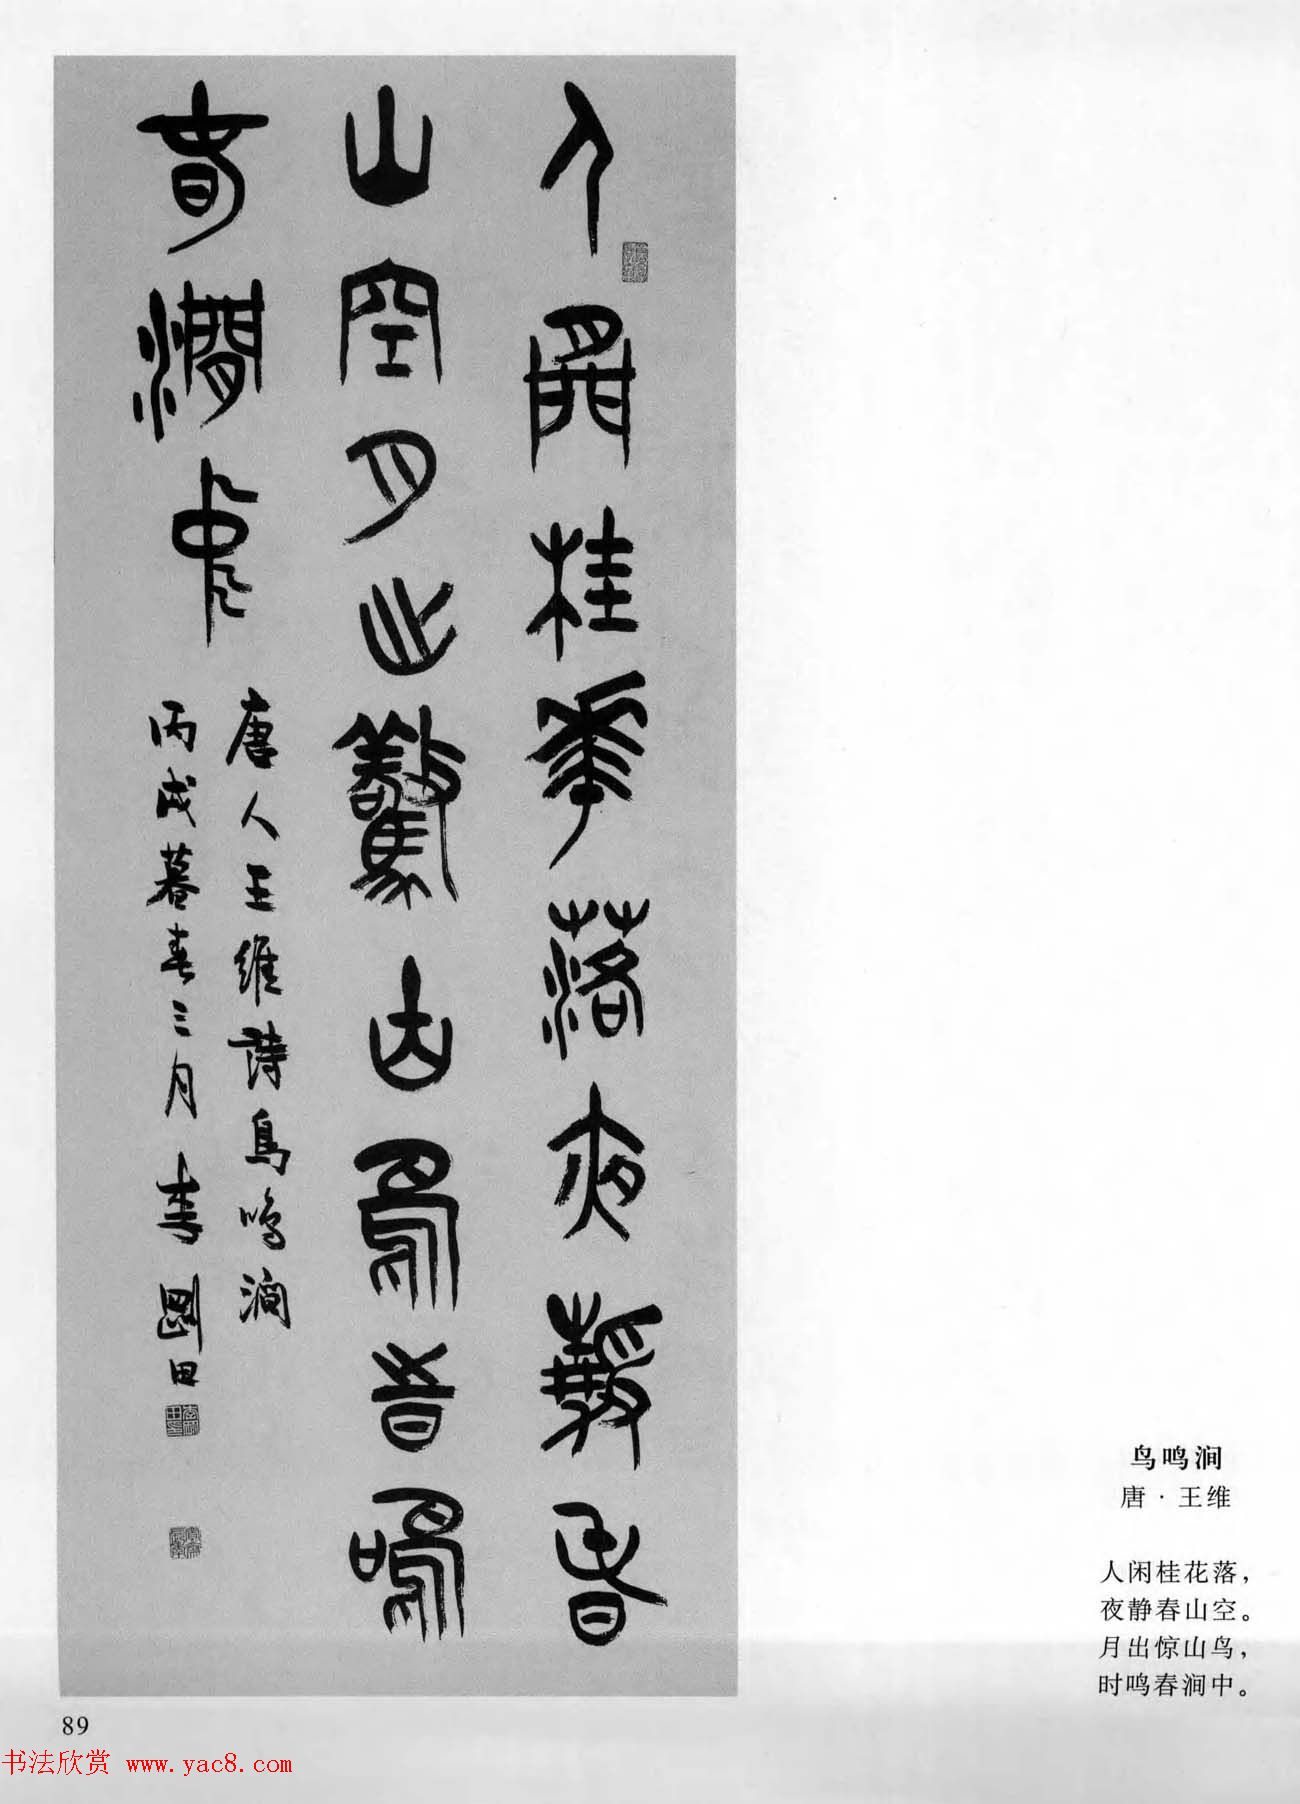 人閒桂華落夜靜春
山空月出驚山鳥時鳴
春澗中
唐人王維詩鳥鳴澗
丙戌暮春三月李剛田
鸟鸣涧
唐·王维
人闲桂花落，
夜静春山空。
月出惊山鸟，
时鸣春涧中。
89
书法欣赏 www.yac8.com